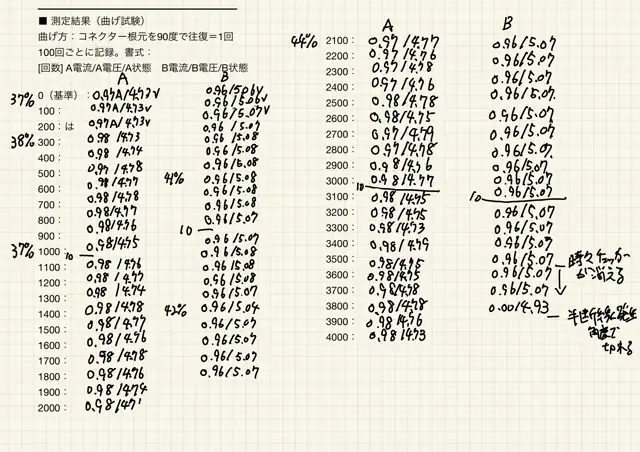 ■ 測定結果（曲げ試験）
曲げ方：コネクター根元を90度で往復=1回
100回ごとに記録。書式：
[回数] A電流/A電圧/A状態 B電流/B電圧/B状態
A B
37% 0（基準）： 0.97A/4.73V 0.96/5.06V
100： 0.97A/4.73V 0.96/5.06V
200：は 0.97A/4.73V 0.96/5.07V
38% 300： 0.98/4.73 0.96/5.07
400： 0.98/4.74 0.96/5.08
500： 0.97/4.78 0.96/5.08
600： 0.98/4.77 41% 0.96/5.08
700： 0.98/4.78 0.96/5.08
800： 0.98/4.77 0.96/5.08
900： 0.98/4.76 0.96/5.07
37% 1000： 10 0.98/4.75 10 0.96/5.07
1100： 0.98/4.76 0.96/5.08
1200： 0.98/4.77 0.96/5.08
1300： 0.98/4.74 0.96/5.08
1400： 0.98/4.78 0.96/5.07
1500： 0.98/4.77 42% 0.96/5.04
1600： 0.98/4.76 0.96/5.07
1700： 0.98/4.78 0.96/5.07
1800： 0.98/4.76 0.96/5.07
1900： 0.98/4.74 0.96/5.07
2000： 0.98/4.71
A B
44% 2100： 0.97/4.77 0.96/5.07
2200： 0.97/4.76 0.96/5.07
2300： 0.97/4.78 0.96/5.07
2400： 0.97/4.76 0.96/5.07
2500： 0.98/4.78 0.96/5.07
2600： 0.98/4.75 0.96/5.07
2700： 0.97/4.79 0.96/5.07
2800： 0.97/4.78 0.96/5.07
2900： 0.98/4.76 0.96/5.07
3000： 0.98/4.77 0.96/5.07
10 10
3100： 0.98/4.75 0.96/5.07
3200： 0.98/4.75 0.96/5.07
3300： 0.98/4.73 0.96/5.07
3400： 0.98/4.79 0.96/5.07
3500： 0.98/4.75 0.96/5.07 時々チェッカー
3600： 0.98/4.75 0.96/5.07 が消える
3700： 0.98/4.78 0.96/5.07
3800： 0.98/4.78 0.00/4.93
3900： 0.98/4.76 角度で
4000： 0.98/4.73 切れる